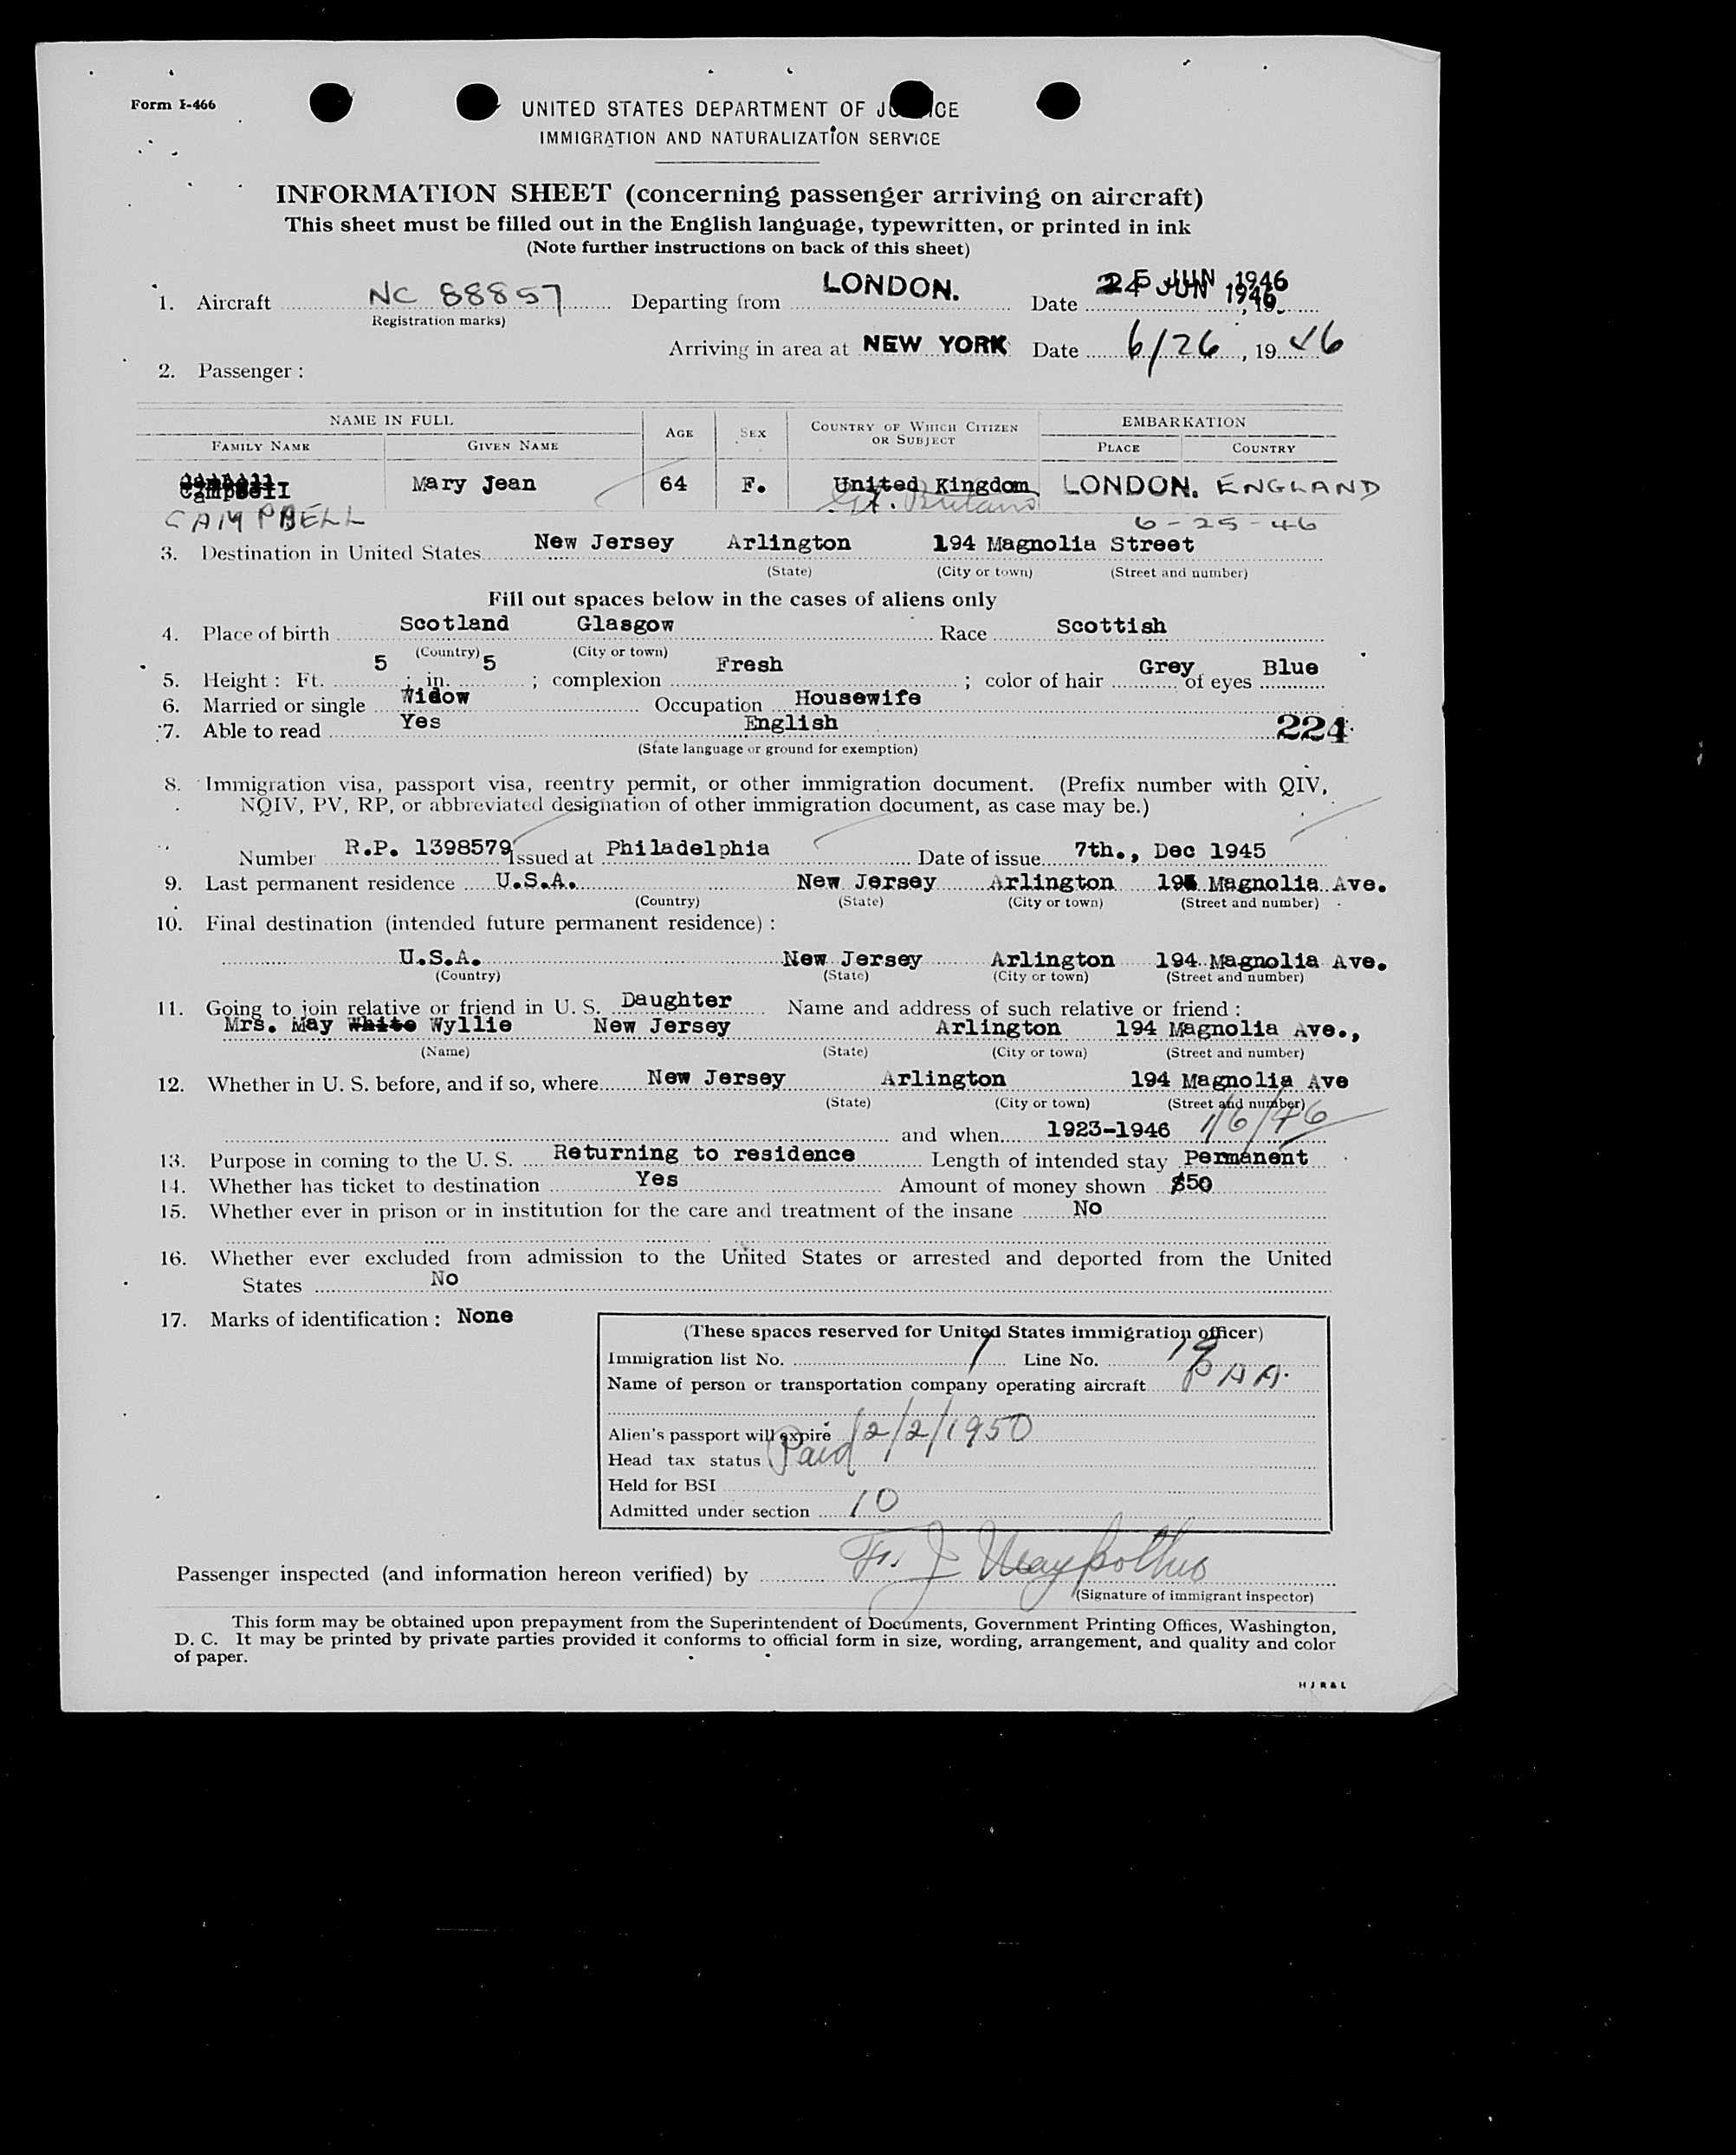 Form I-466
UNITED STATES DEPARTMENT OF JUSTICE
IMMIGRATION AND NATURALIZATION SERVICE
INFORMATION SHEET (concerning passenger arriving on aircraft)
This sheet must be filled out in the English language, typewritten, or printed in ink
(Note further instructions on back of this sheet)
1. Aircraft NC 88857 Departing from LONDON. Date 25 JUN 1946, 19
(Registration marks)
Arriving in area at NEW YORK Date 6/26, 1946
2. Passenger:
NAME IN FULL AGE SEX COUNTRY OF WHICH CITIZEN OR SUBJECT EMBARKATION
FAMILY NAME GIVEN NAME PLACE COUNTRY
Campbell Mary Jean 64 F. United Kingdom LONDON. ENGLAND
CAMPBELL Gt. Britain 6-25-46
3. Destination in United States New Jersey Arlington 194 Magnolia Street
(State) (City or town) (Street and number)
Fill out spaces below in the cases of aliens only
4. Place of birth Scotland Glasgow Race Scottish
(Country) (City or town)
5. Height: Ft. 5; in. 5; complexion Fresh; color of hair Grey of eyes Blue
6. Married or single Widow Occupation Housewife
7. Able to read Yes English 224
(State language or ground for exemption)
8. Immigration visa, passport visa, reentry permit, or other immigration document. (Prefix number with QIV,
NQIV, PV, RP, or abbreviated designation of other immigration document, as case may be.)
Number R.P. 1398579 Issued at Philadelphia Date of issue 7th., Dec 1945
9. Last permanent residence U.S.A. New Jersey Arlington 194 Magnolia Ave.
(Country) (State) (City or town) (Street and number)
10. Final destination (intended future permanent residence):
U.S.A. New Jersey Arlington 194 Magnolia Ave.
(Country) (State) (City or town) (Street and number)
11. Going to join relative or friend in U. S. Daughter Name and address of such relative or friend:
Mrs. May White Wyllie New Jersey Arlington 194 Magnolia Ave.,
(Name) (State) (City or town) (Street and number)
12. Whether in U. S. before, and if so, where New Jersey Arlington 194 Magnolia Ave
(State) (City or town) (Street and number)
and when 1923-1946 1/6/46
13. Purpose in coming to the U. S. Returning to residence Length of intended stay Permanent
14. Whether has ticket to destination Yes Amount of money shown $50
15. Whether ever in prison or in institution for the care and treatment of the insane No
16. Whether ever excluded from admission to the United States or arrested and deported from the United
States No
17. Marks of identification: None
(These spaces reserved for United States immigration officer)
Immigration list No. 1 Line No. 19
Name of person or transportation company operating aircraft PAA.
Alien's passport will expire 12/2/1950
Head tax status Paid
Held for BSI
Admitted under section 10
Passenger inspected (and information hereon verified) by F. J.
(Signature of immigrant inspector)
This form may be obtained upon prepayment from the Superintendent of Documents, Government Printing Offices, Washington,
D. C. It may be printed by private parties provided it conforms to official form in size, wording, arrangement, and quality and color
of paper.
H J R & L